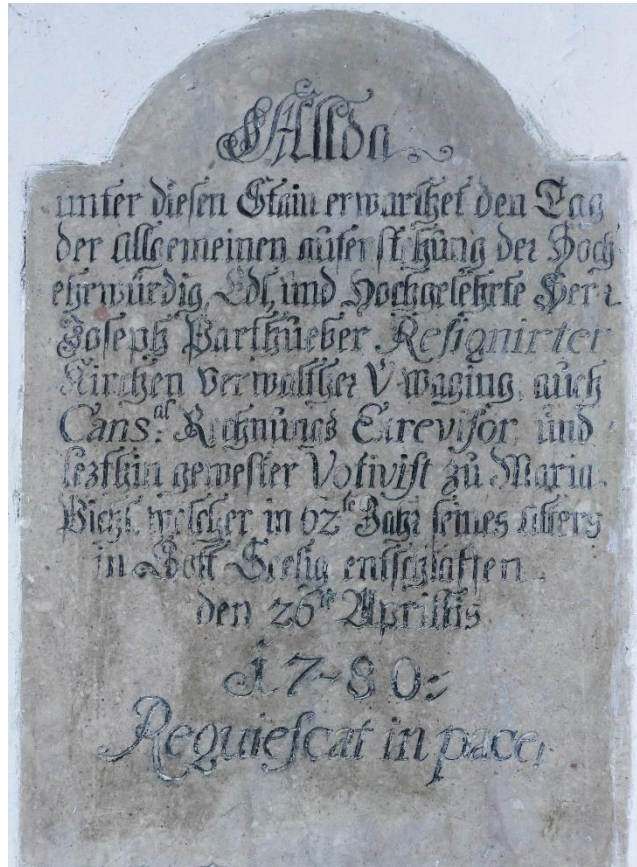 Allda
unter diesen Stain erwarthet den Tag
der allgemeinen auferstehung der Hoch
ehrwürdig, Edl, und Hochgelehrte Herr
Joseph Parthueber Resignirter
Kirchen Verwalther V. Waging, auch
Cons:al Rechnungs Correvisor, und
lezthin gewester Votivist zu Maria
Büchl, welcher in 62te Jahr seines alters
in Gott Seelig entschlaffen
den 26te Aprillis
1780:
Requiescat in pace,